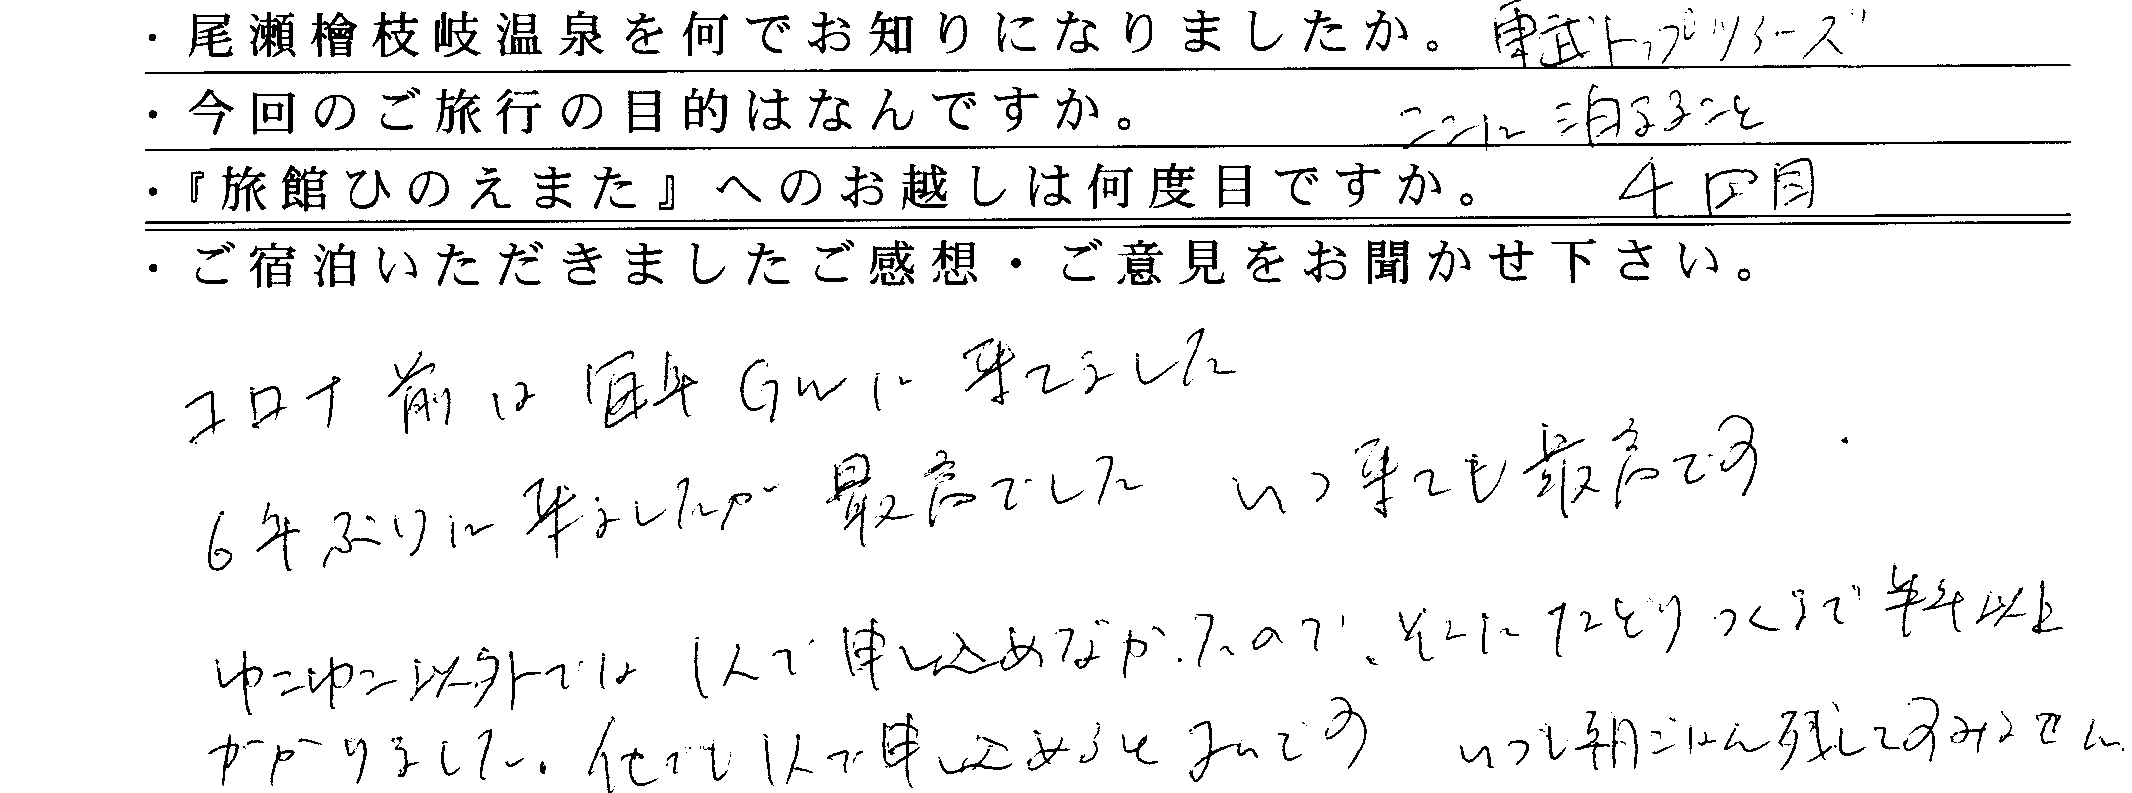 ・尾瀬檜枝岐温泉を何でお知りになりましたか。 東武トップツアーズ
・今回のご旅行の目的はなんですか。 ここに泊まること
・『旅館ひのえまた』へのお越しは何度目ですか。 4回目
・ご宿泊いただきましたご感想・ご意見をお聞かせ下さい。
コロナ前は毎年GWに来てました
6年ぶりに来ましたが最高でした いつ来ても最高です.
ゆこゆこ以外では1人で申し込めなかったので、そこにたどりつくまで半年以上
かかりました。他でも1人で申し込めるとよいです いつも朝ごはん残してすみません